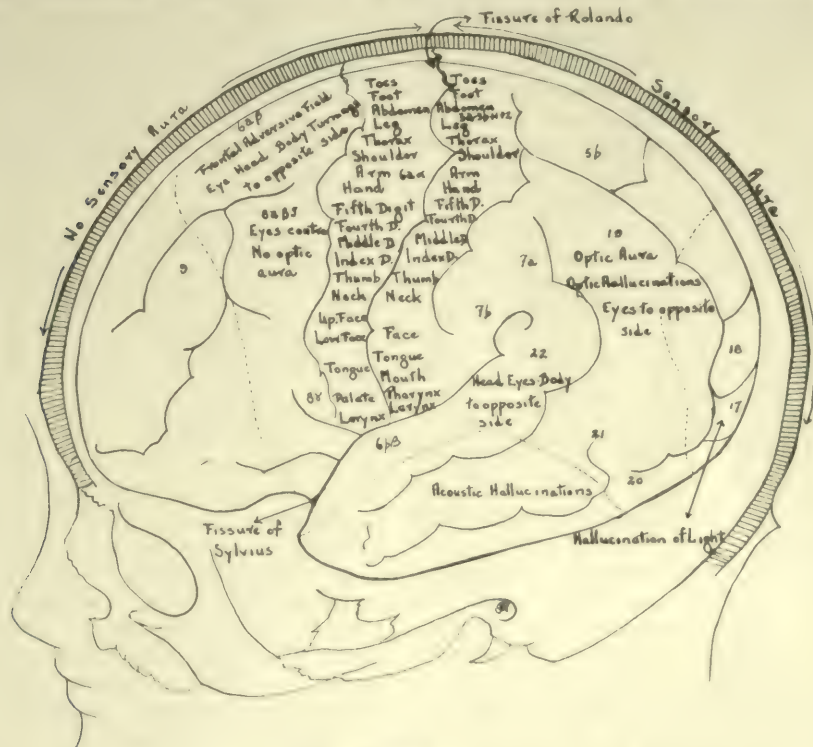 Fissure of Rolando
No Sensory Aura
Sensory Aura
6aβ
Frontal Adversive Field
Eye Head Body Turning
to opposite side
Toes
Foot
Abdomen
Leg
Thorax
Shoulder
Arm 6aα
Hand
Fifth Digit
Fourth D.
Middle D
Index D.
Thumb
Neck
Up. Face
Low Face
Tongue
Palate
Larynx
Toes
Foot
Abdomen
Leg
Thorax
Shoulder
Arm
Hand
Fifth D.
Fourth D.
Middle D
Index D.
Thumb
Neck
Face
Tongue
Mouth
Pharynx
Larynx
9
Eyes
No optic
aura
5b
7a
7b
19
Optic Aura
Optic Hallucinations
Eyes to opposite
side
18
17
22
Head Eyes Body
to opposite
side
21
20
Acoustic Hallucinations
Fissure of
Sylvius
Hallucination of Light